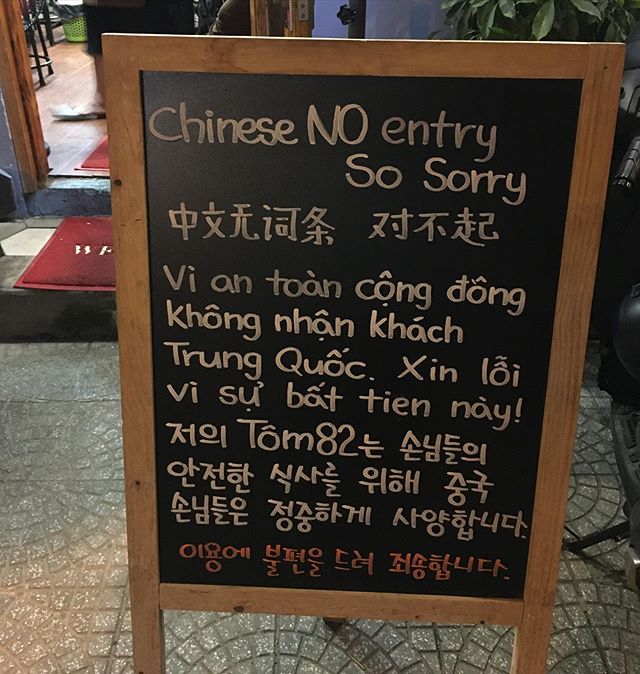 Chinese NO entry
So Sorry
中文无词条 对不起
Vi an toàn cộng đồng
không nhận khách
Trung Quốc. Xin lỗi
vi sự bất tien này!
저의 Tôm82는 손님들의
안전한 식사를 위해 중국
손님들은 정중하게 사양합니다.
이용에 불편을 드려 죄송합니다.